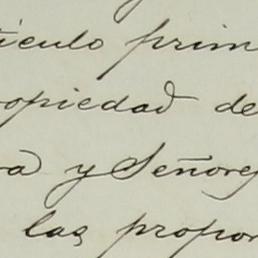 tículo prim
opiedad de
ra y Señores
las propor